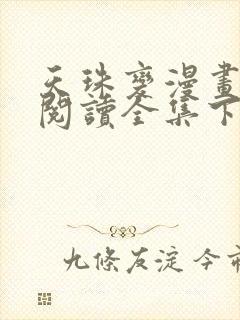 天珠變漫畫
閱讀全集下
九條友淀 今市